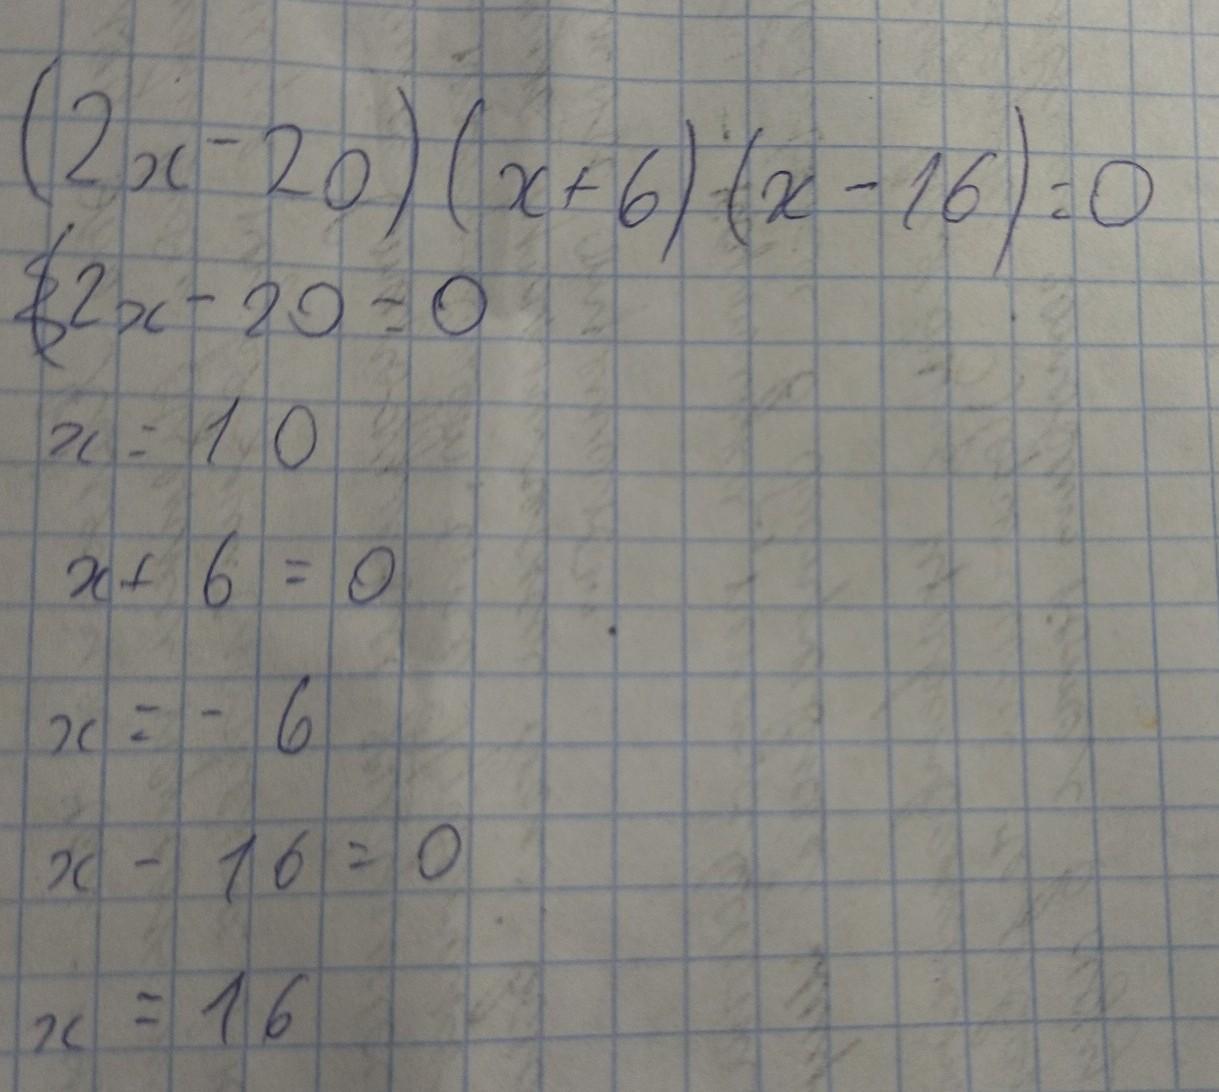 (2x-20)(x+6)(x-16)=0
2x-20=0
x=10
x+6=0
x=-6
x-16=0
x=16